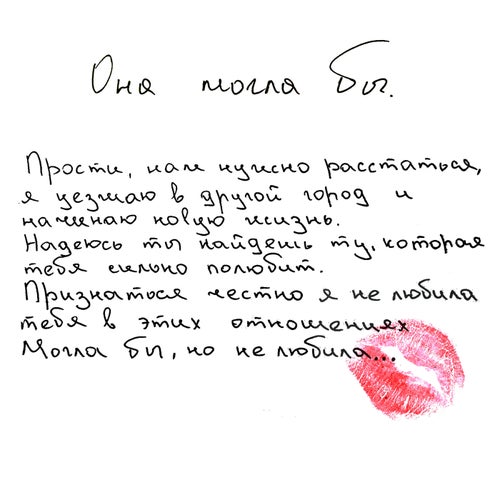 Она могла бы.
Прости, нам нужно расстаться,
я уезжаю в другой город и
начинаю новую жизнь.
Надеюсь ты найдешь ту, которая
тебя сильно полюбит.
Признаться честно я не любила
тебя в этих отношениях
Могла бы, но не любила...